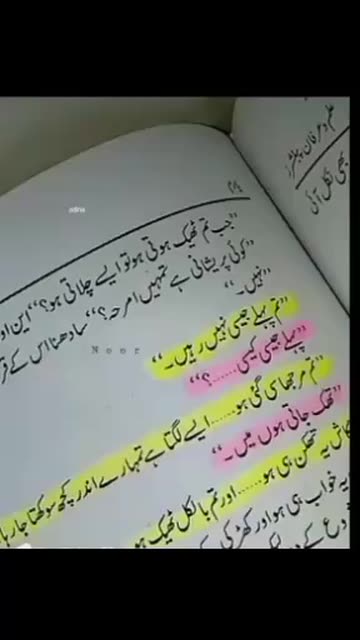 علم و عرفان پبلشرز
بھی نکل آئی
adna
"جب تم ٹھیک ہوتی ہو تو ایسے چلاتی ہو؟" این او
"کوئی پریشانی ہے تمہیں امرحہ؟" سادھنا اس کے قر
"نہیں۔"
Noor
"تم پہلے جیسی نہیں رہیں۔"
"پہلے جیسی کیسی......؟"
"تم مرجھا سی گئی ہو...... ایسے لگتا ہے تمہارے اندر کچھ سوکھتا جا رہا
"تھک جاتی ہوں میں۔"
کاش یہ تھکن ہی ہو...... اور تم بالکل ٹھیک ہو
یہ خواب ہی ہو اور کھڑکی